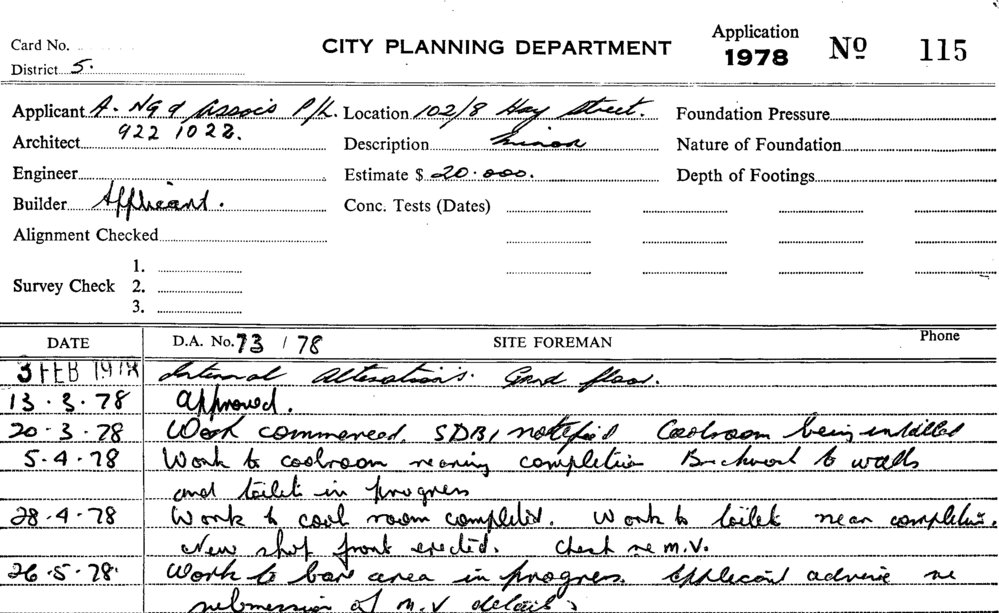 Card No.
CITY PLANNING DEPARTMENT
Application
1978
Nº 115
District 5.
Applicant A. Ng & Assocs P/L.
Location 102/8 Hay Street.
Foundation Pressure
Architect 922 1022.
Description Minor
Nature of Foundation
Engineer
Estimate $ 20.000.
Depth of Footings
Builder Applicant.
Conc. Tests (Dates)
Alignment Checked
1.
Survey Check 2.
3.
DATE D.A. No. 73 / 78 SITE FOREMAN Phone
3 FEB 1978 Internal Alterations. Grnd floor.
13.3.78 Approved.
20.3.78 Work commenced. SDB1 notified Coolroom being installed
5.4.78 Work to coolroom nearing completion Brickwork to walls
and toilets in progress
28.4.78 Work to cool room completed. Work to toilets near completion.
New shop front erected. Check re M.V.
26.5.78. Work to bar area in progress. Applicant advise re
submission of M.V details